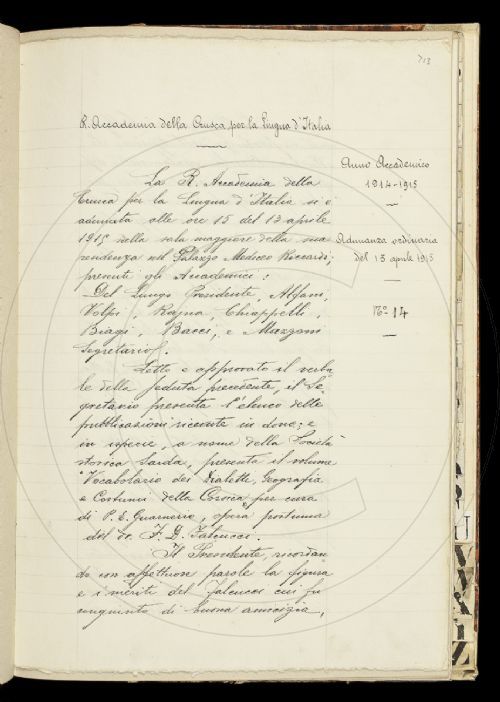 713
R. Accademia della Crusca per la Lingua d'Italia
Anno Accademico
1914-1915
Adunanza ordinaria
del 13 aprile 1915
N.o 14
La R. Accademia della
Crusca per la Lingua d'Italia si è
adunata alle ore 15 del 13 aprile
1915 nella sala maggiore della sua
residenza nel Palazzo Mediceo Riccardi;
presenti gli Accademici:
Del Lungo Presidente, Alfani,
Volpi, Rajna, Chiappelli,
Biagi, Bacci, e Mazzoni
Segretario.
Letto e approvato il verba
le della seduta precedente, il Se
gretario presenta l'elenco delle
pubblicazioni ricevute in dono; e
in ispecie, a nome della Società
storica Sarda, presenta il volume
"Vocabolario dei Dialetti, Geografia
e Costumi della Corsica" per cura
di P. E. Guarnerio, opera postuma
del Sr. F. D. Falcucci.
Il Presidente, ricordan
do con affettuose parole la figura
e i meriti del Falcucci cui fu
congiunto di buona amicizia,